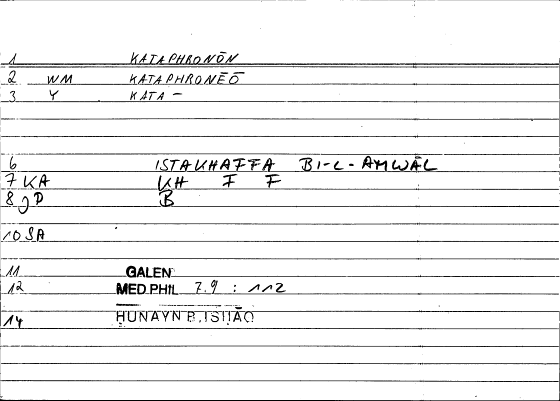 1 KATAPHRONŌN
2 WM KATAPHRONEŌ
3 Y KATA -
6 ISTAKHAFFA BI-L-AMWĀL
7 KA KH F F
8 JD B
10 SA
11 GALEN
12 MED.PHIL 7.9 : 112
14 ḤUNAYN B. ISḤĀQ